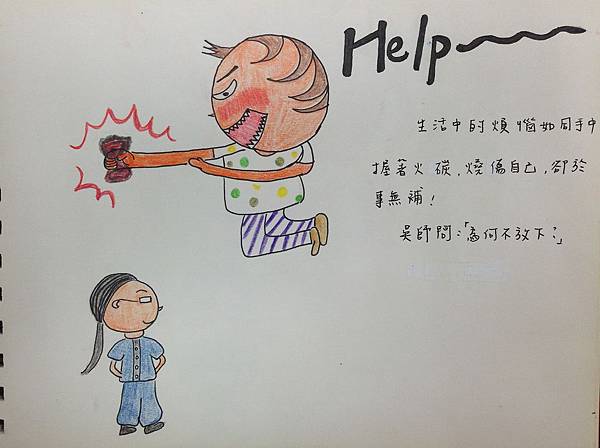 Help~~~
生活中的煩惱如同手中
握著火碳,燒傷自己,卻於
事無補!
吳師問:「為何不放下?」